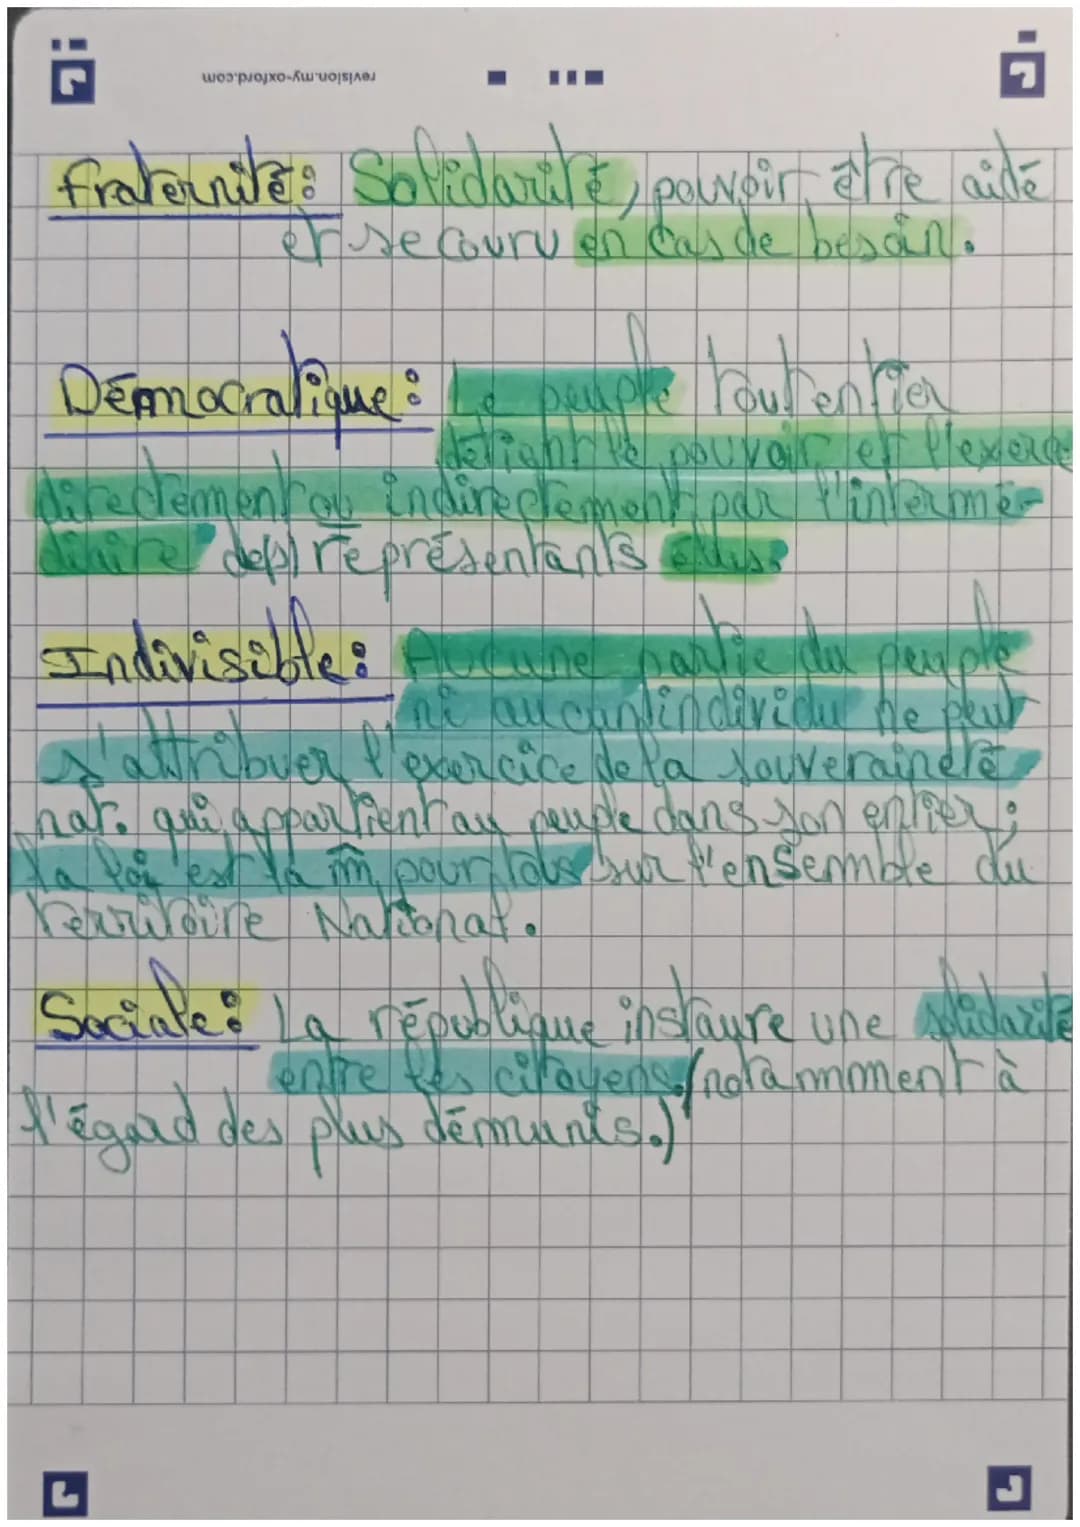 revision.my-oxford.com
fraternité: Solidarité, pouvoir être aidé
et secouru en cas de besoin.
Démocratique: Le peuple tout entier
détient le pouvoir et l'exerce
directement ou indirectement par l'intermé-
diaire de(s) représentants élus.
Indivisible: Aucune partie du peuple
ni aucun individu ne peut
s'attribuer l'exercice de la souveraineté
nat. qui appartient au peuple dans son entier;
la loi est la m̂ pour tous sur l'ensemble du
territoire National.
Sociale: La république instaure une solidarité
entre les citoyens (notamment à
l'égard des plus démunis.)